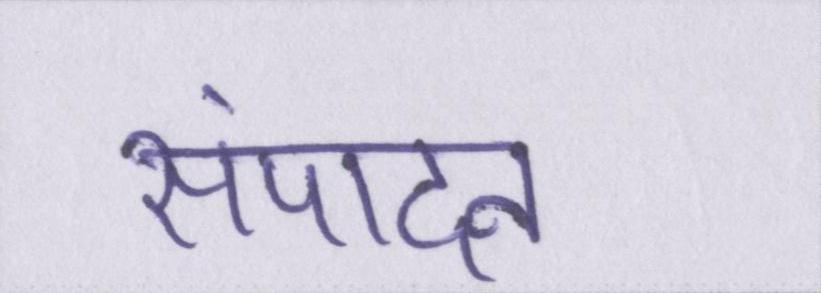 संपादन